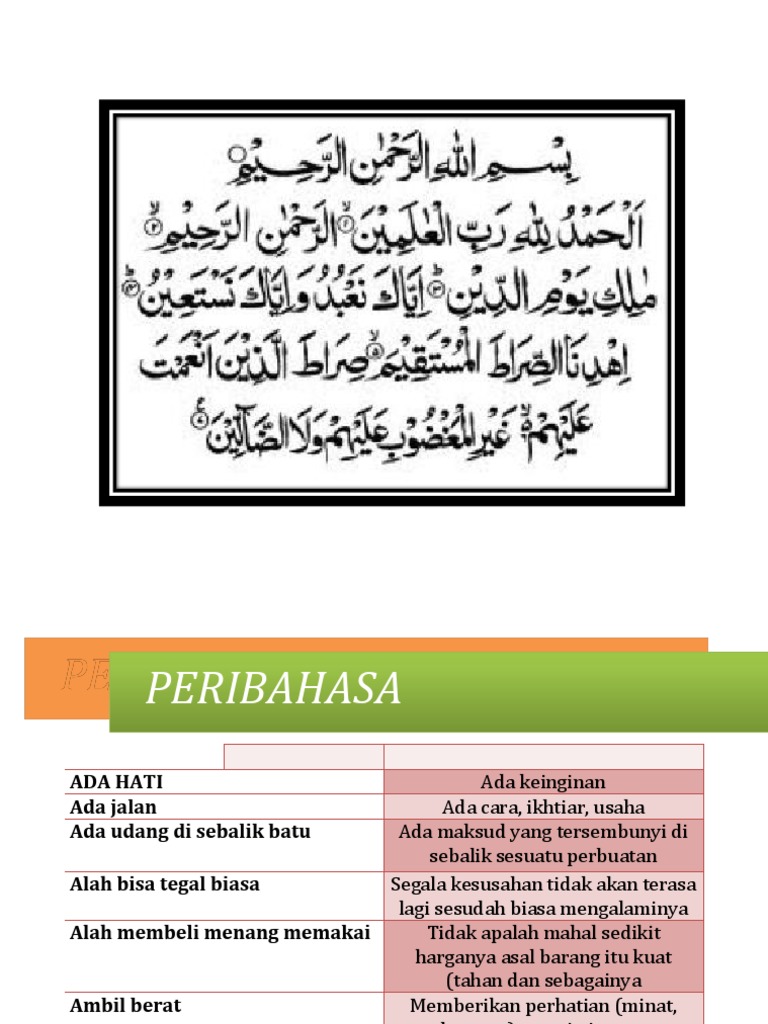 بِسْمِ اللهِ الرَّحْمٰنِ الرَّحِيْمِ
اَلْحَمْدُ لِلّٰهِ رَبِّ الْعٰلَمِيْنَ ۙ﴿١﴾ الرَّحْمٰنِ الرَّحِيْمِ ۙ﴿٢﴾
مٰلِكِ يَوْمِ الدِّيْنِ ؕ﴿٣﴾ اِيَّاكَ نَعْبُدُ وَاِيَّاكَ نَسْتَعِيْنُ ؕ﴿٤﴾
اِهْدِنَا الصِّرَاطَ الْمُسْتَقِيْمَ ۙ﴿٥﴾ صِرَاطَ الَّذِيْنَ اَنْعَمْتَ
عَلَيْهِمْ ۙ غَيْرِ الْمَغْضُوْبِ عَلَيْهِمْ وَلَا الضَّآلِّيْنَ
PE
PERIBAHASA
ADA HATI Ada keinginan
Ada jalan Ada cara, ikhtiar, usaha
Ada udang di sebalik batu Ada maksud yang tersembunyi di
sebalik sesuatu perbuatan
Alah bisa tegal biasa Segala kesusahan tidak akan terasa
lagi sesudah biasa mengalaminya
Alah membeli menang memakai Tidak apalah mahal sedikit
harganya asal barang itu kuat
(tahan dan sebagainya
Ambil berat Memberikan perhatian (minat,